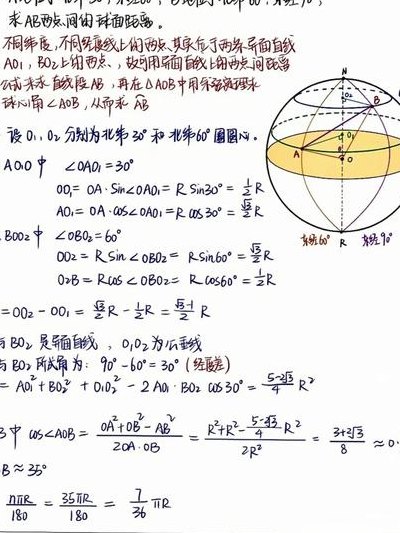 求AB两点间的球面距离。
不同纬度,不同经度线上的两点其实在于两条异面直线
AO1,BO2上的两点、故可用异面直线上的两点间距离
公式来求直线段AB,再在△AOB中用余弦定理求
球心角∠AOB,从而求AB
设O1,O2分别为北纬30°和北纬60°圈圆心。
AO1O中 ∠OAO1=30°
OO1=OA·Sin∠OAO1=RSin30°=1/2R
AO1=OA·cos∠OAO1=Rcos30°=√3/2R
BOO2中 ∠OBO2=60°
OO2=RSin∠OBO2=RSin60°=√3/2R
O2B=Rcos∠OBO2=Rcos60°=1/2R
=OO2-OO1=√3/2R-1/2R=(√3-1)/2R
与BO2是异面直线,O1O2为公垂线
与BO2所成角为:90°-60°=30°(经度差)
=AO1²+BO2²+O1O2²-2AO1·BO2cos30°=(5-2√3)/4R²
B中cos∠AOB=(OA²+OB²-AB²)/(2OA·OB)=(R²+R²-(5-2√3)/4R²)/(2R²)=(3+2√3)/8≈0.
B≈35°
nπR/180=35πR/180=7/36πR
N
O2
B
O1
A
O
R
东经60°
东经90°